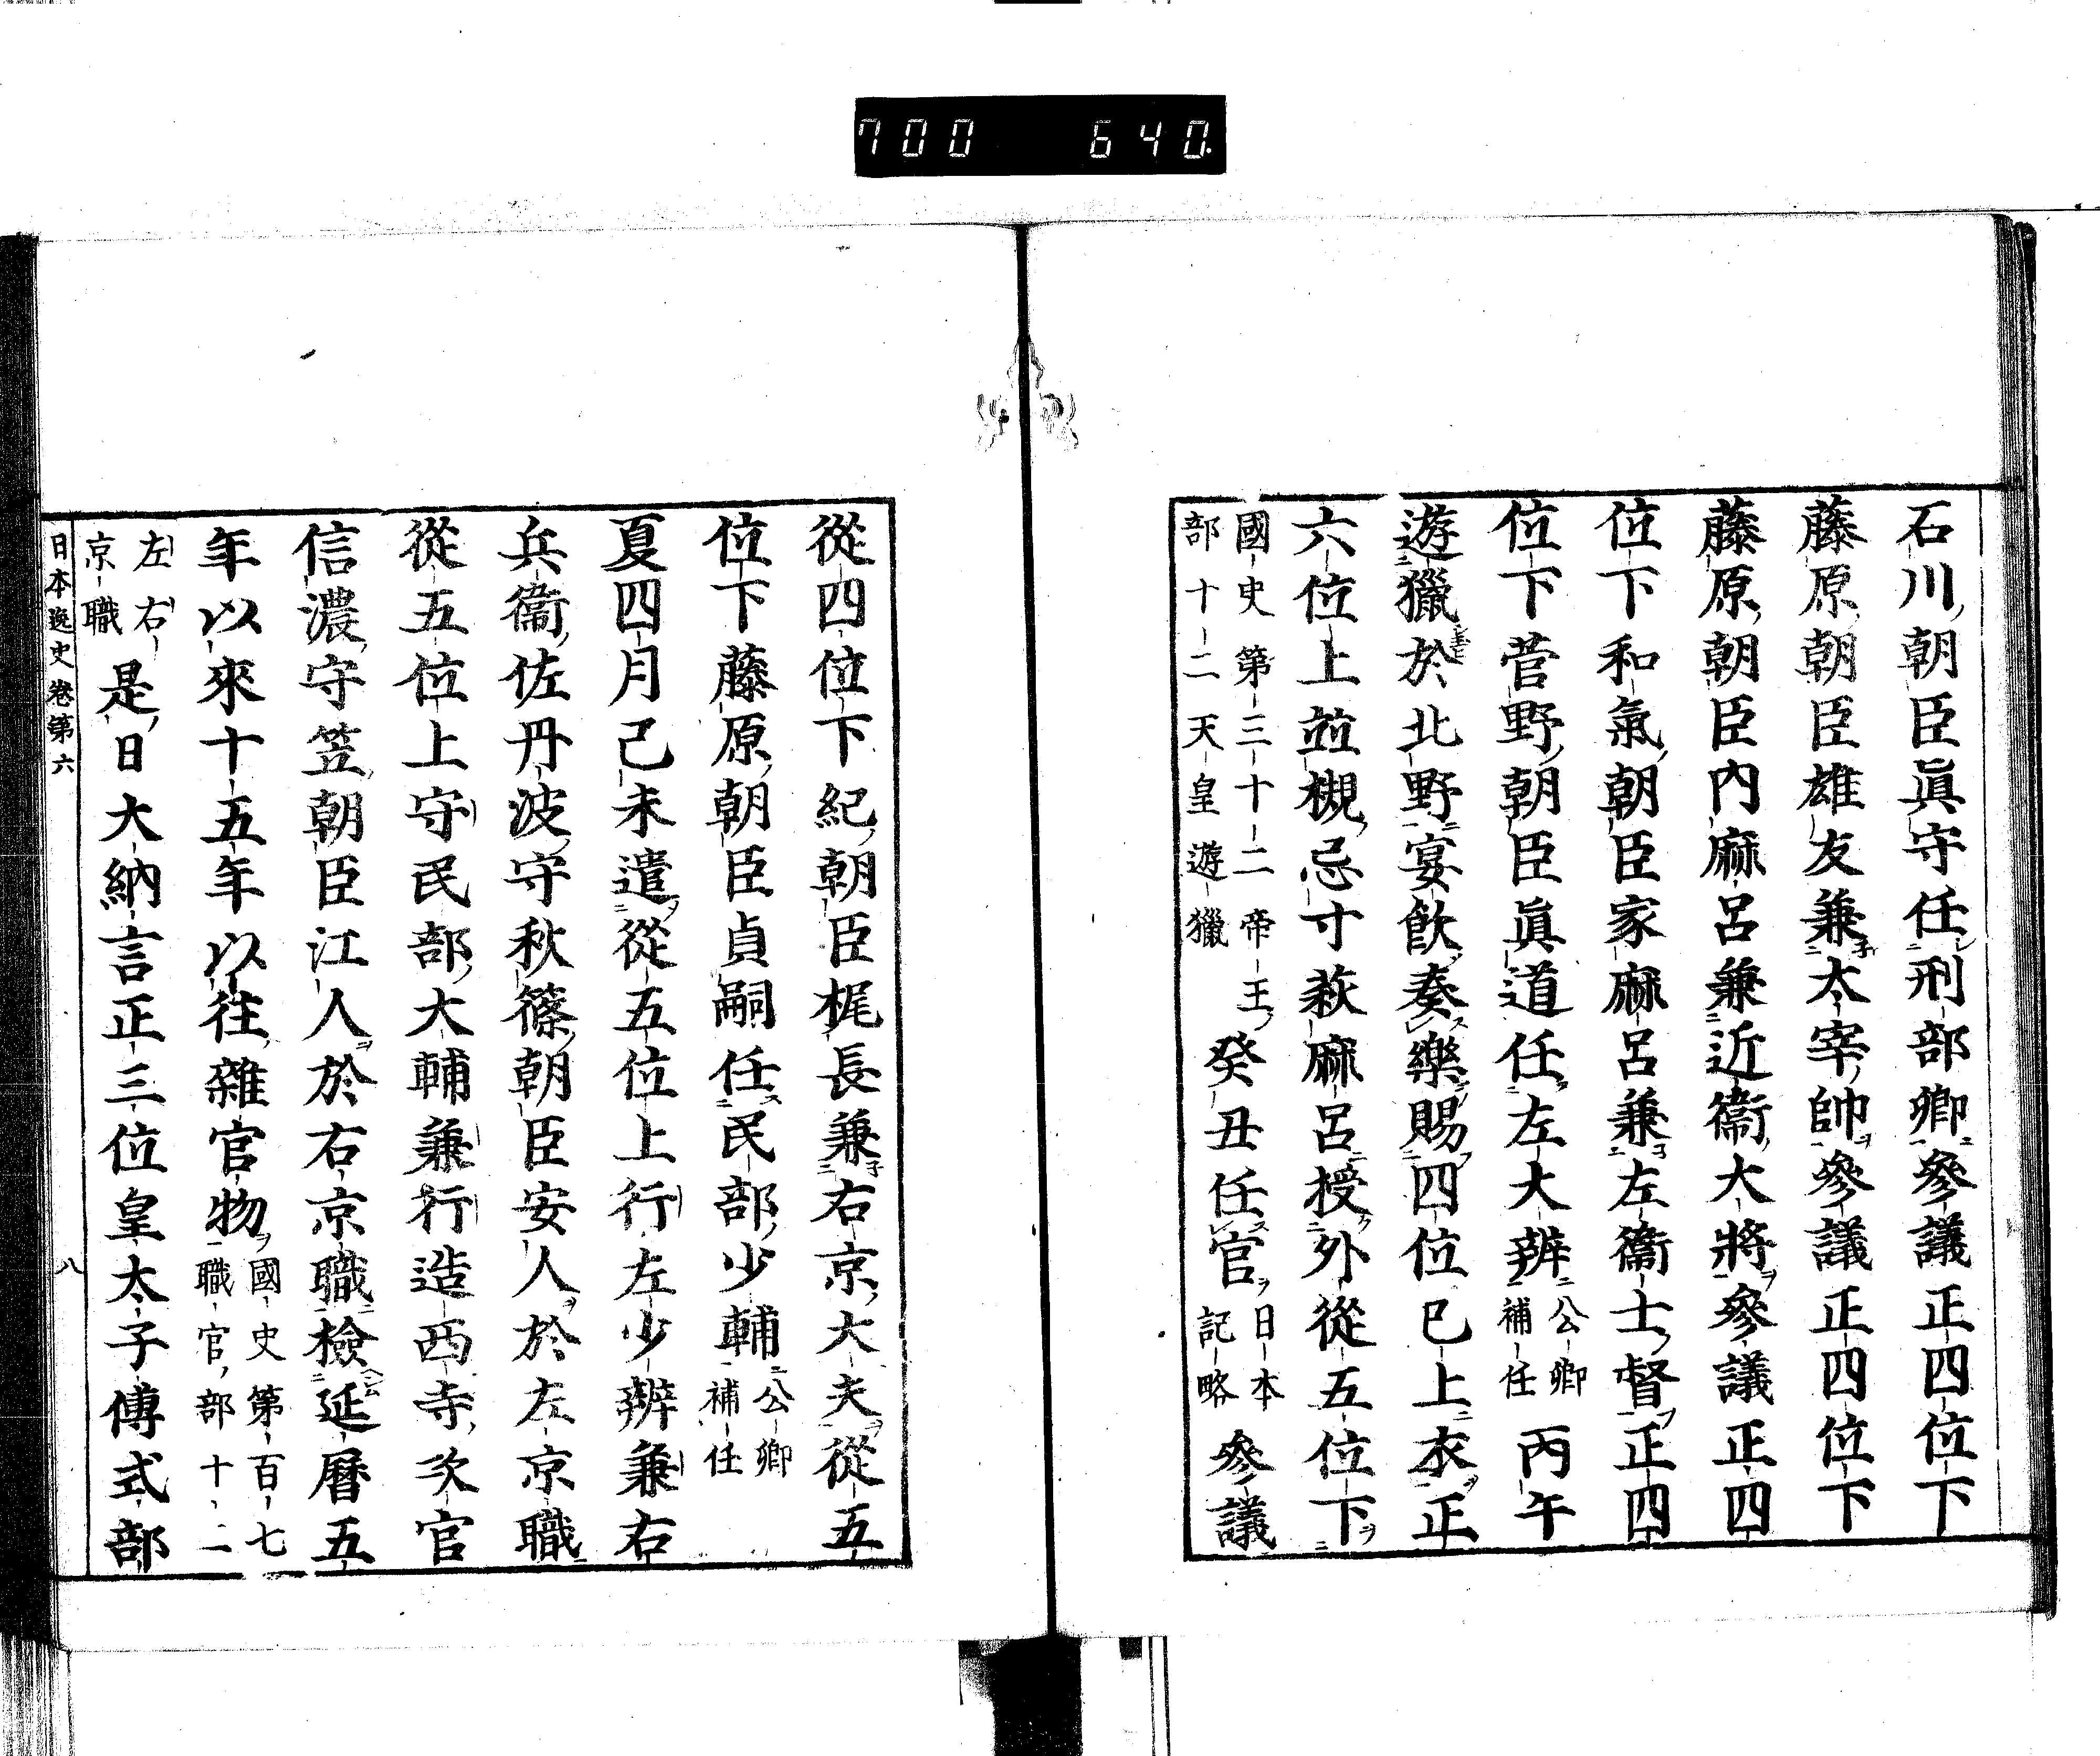 700 640.
石川朝臣眞守任刑部卿參議正四位下
藤原朝臣雄友兼太宰帥參議正四位下
藤原朝臣內麻呂兼近衞大將參議正四
位下和氣朝臣家麻呂兼左衞士督正四
位下菅野朝臣眞道任左大辨公卿補任丙午
遊獵於北野宴飮奏樂賜四位已上衣正
六位上竝槻忌寸萩麻呂授外從五位下
國史第三十二帝王部十二天皇遊獵癸丑任官日本記略參議
從四位下紀朝臣梶長兼右京大夫從五
位下藤原朝臣貞嗣任民部少輔公卿補任
夏四月己未遣從五位上行左少辨兼右
兵衞佐丹波守秋篠朝臣安人於左京職
從五位上守民部大輔兼行造西寺次官
信濃守笠朝臣江人於右京職檢延曆五
年以來十五年以往雜官物國史第百七職官部十二
左右京職是日大納言正三位皇太子傅式部
日本逸史卷第六 八